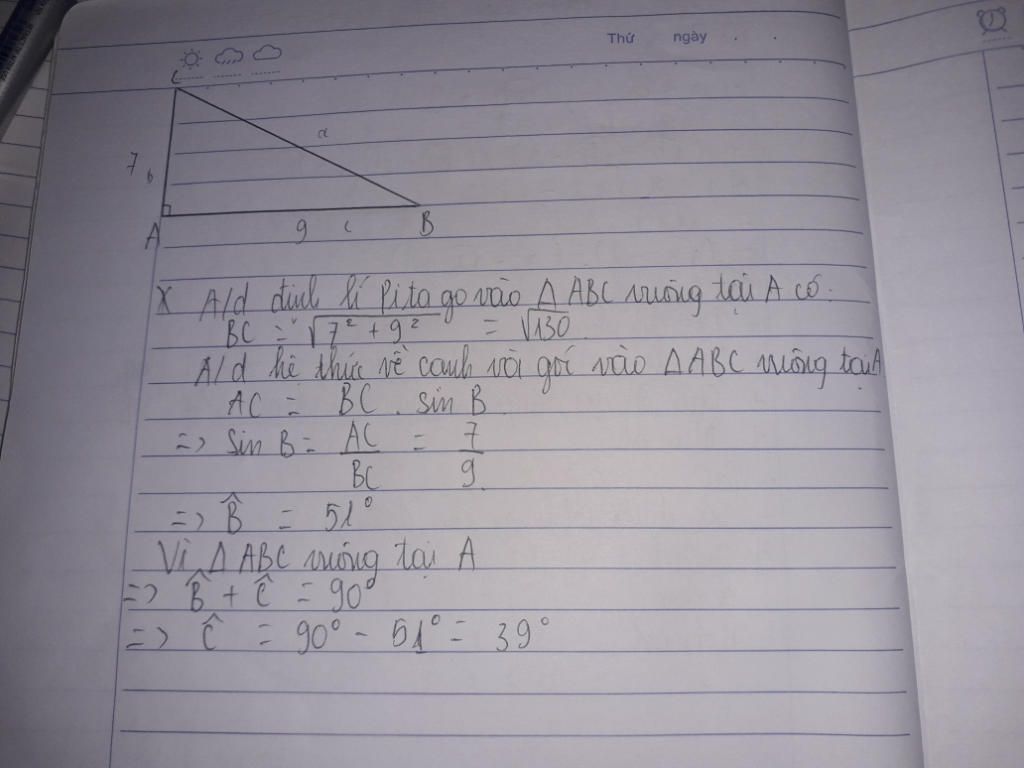 Thứ ngày . .
C
a
7 b
A 9 c B
X A/d định lí Pitago vào Δ ABC vuông tại A có:
BC = √7² + 9² = √130
A/d hê thức về cạnh và góc vào Δ ABC vuông tại A
AC = BC . sin B
=> Sin B = AC/BC = 7/9
=> B̂ = 51°
Vì Δ ABC vuông tại A
=> B̂ + Ĉ = 90°
=> Ĉ = 90° - 51° = 39°